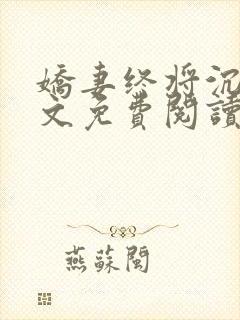 嬌妻终将沉
文免費閱讀
燕蘇閩